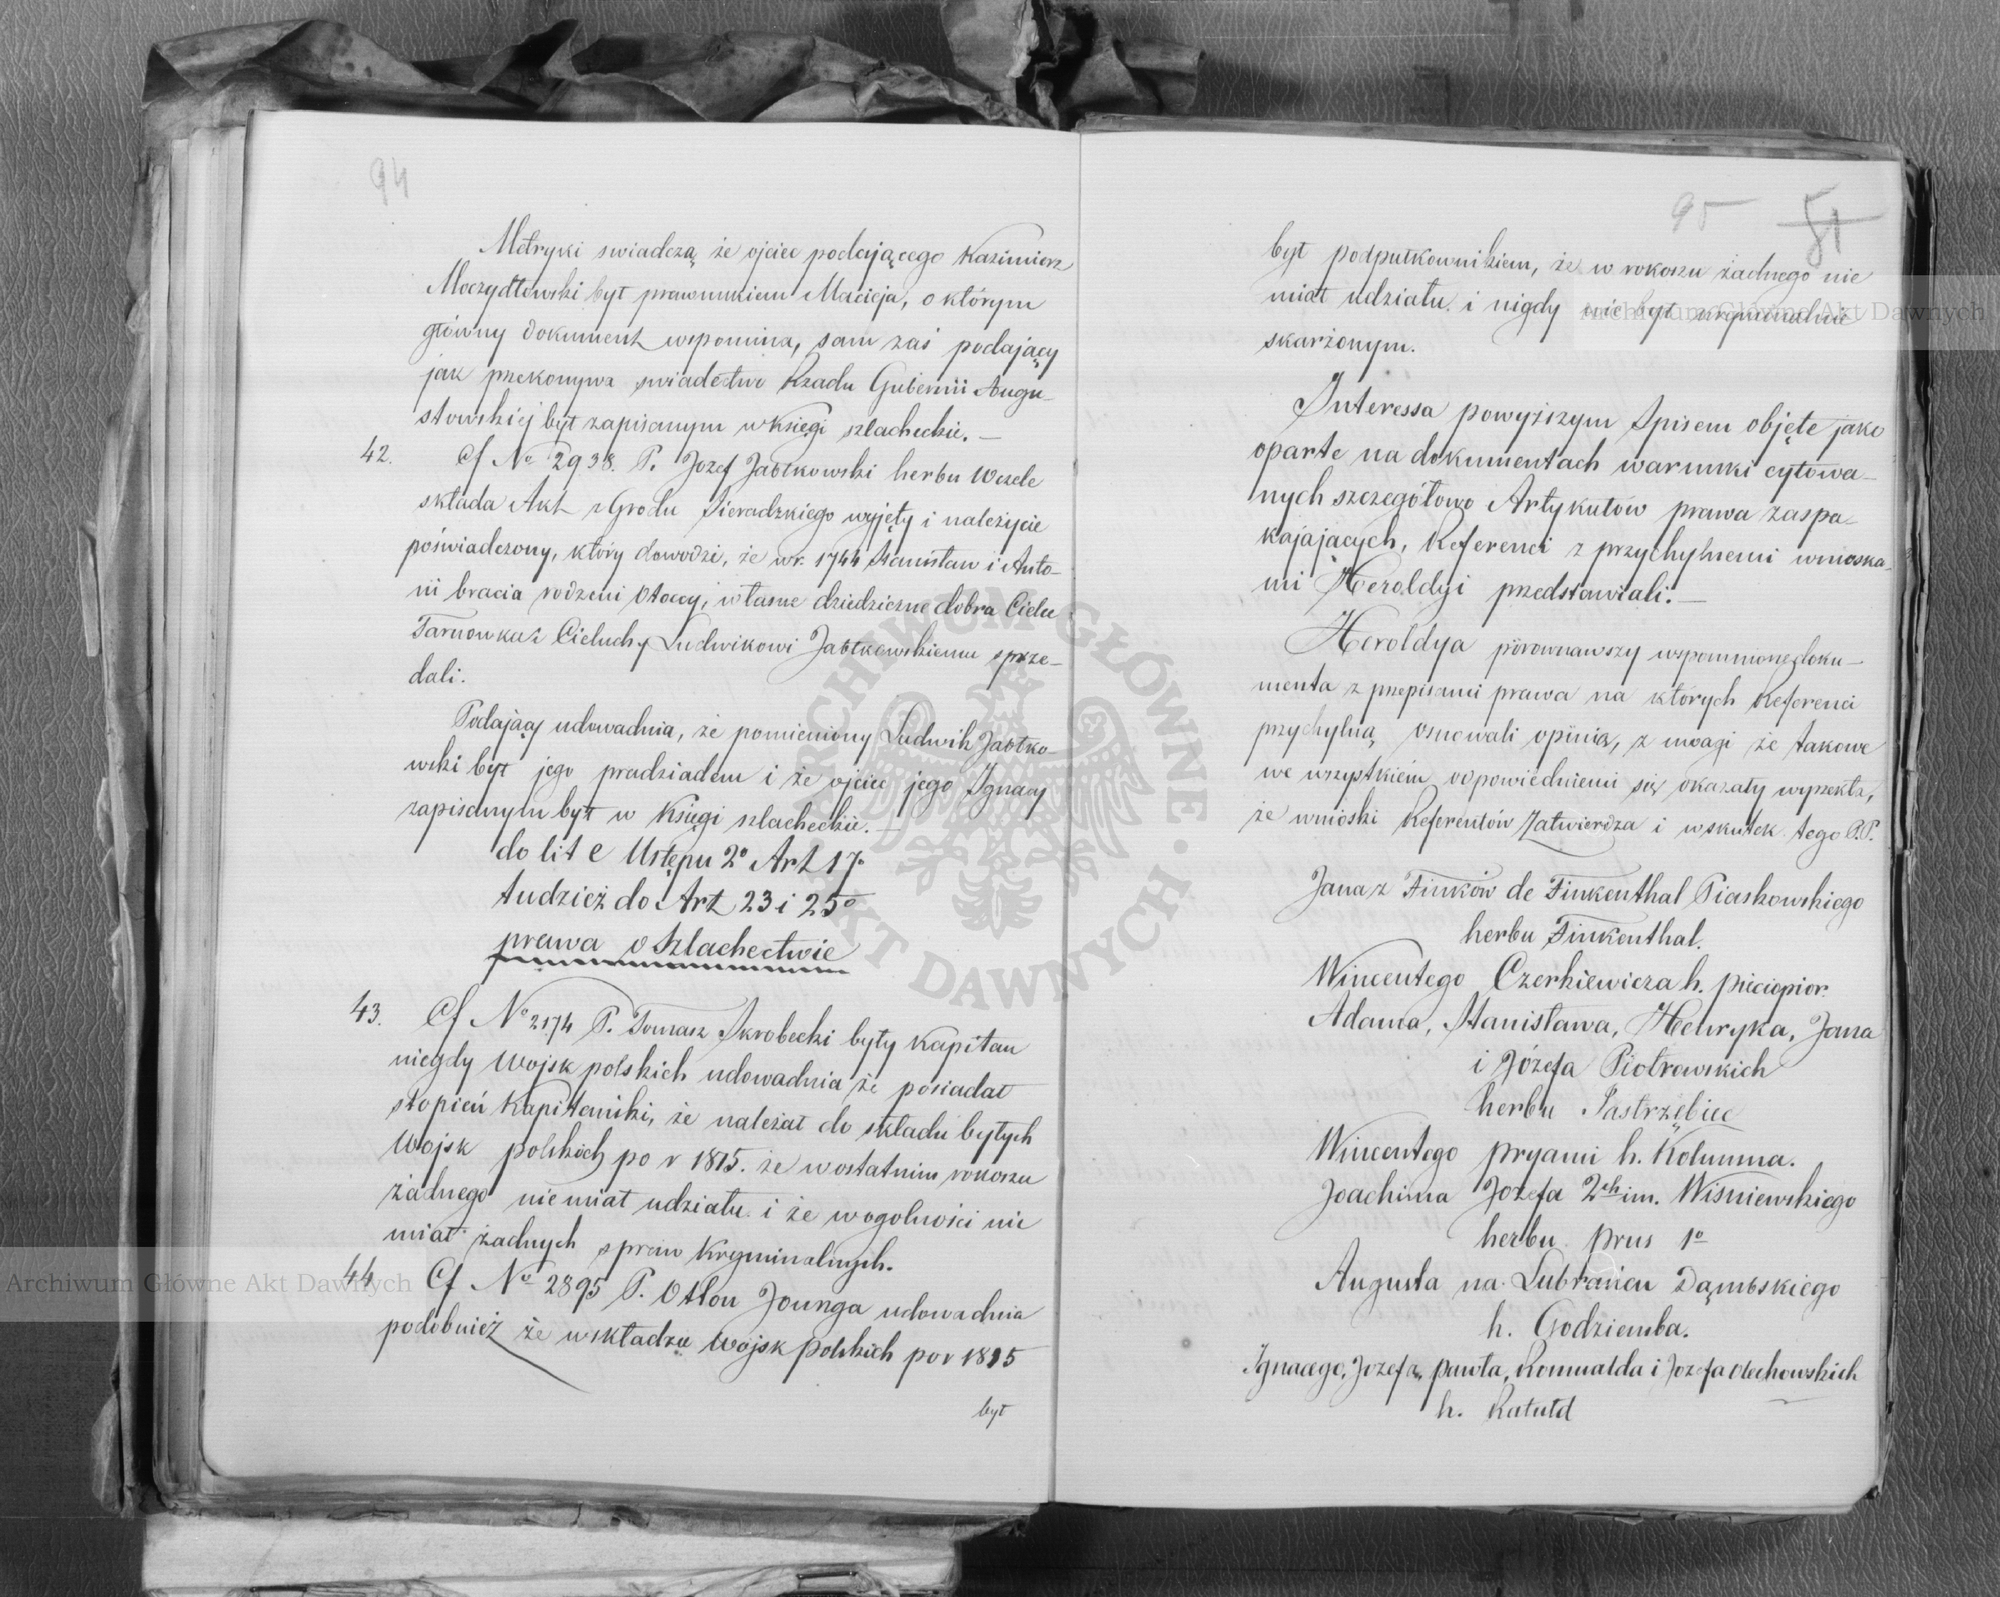 94
Metryki swiadczą że ojciec podającego Kazimierz
Moczydłowski był prawnukiem Macieja, o którym
główny dokument wspomina, sam zaś podający
jak przekonywa swiadectwo Rządu Gubernii Augu-
stowskiej był zapisanym w Księgi szlacheckie. —
42. Cf No 2938. P. Jozef Jabłkowski herbu Wczele
składa Akt z Grodu Sieradzkiego wyjęty i należycie
poświadczony, który dowodzi, że w r. 1744 Stanisław i Anto-
ni bracia rodzeni Otoccy, własne dziedziczne dobra Cielce
Tarnowka i Cieluchy Ludwikowi Jabłkowskiemu sprze-
dali.
Podający udowadnia, że pomieniony Ludwik Jabłko-
wski był jego pradziadem i że ojciec jego Ignacy
zapisanym był w Księgi szlacheckie. —
do lit e Ustępu 2o Art 17o
tudzież do Art 23 i 25o
prawa o Szlachectwie
43. Cf No 2174 P. Tomasz Skrobecki były Kapitan
niegdy Wojsk polskich udowadnia że posiadał
stopień Kapitański, że należał do składu byłych
Wojsk polskich po r 1815. że w ostatnim rokoszu
żadnego nie miał udziału i że wogolności nie
miał żadnych spraw Kryminalnych.
44 Cf No 2895 P. Otton Jounga udowadnia
podobnież że w składzie Wojsk polskich po r 1815
był
95 51
był podpułkownikiem, że w rokoszu żadnego nie
miał udziału i nigdy nie był kryminalnie
skarżonym.
Interessa powyższym Spisem objęte jako
oparte na dokumentach warunki cytowa-
nych szczegółowo Artykułów prawa zaspa-
kajających, Referenci z przychylnemi wnioska-
mi Heroldyi przedstawiali. —
Heroldya porownawszy wspomnione doku-
menta z przepisami prawa na których Referenci
przychylną osnowali opinię, z uwagi że takowe
we wszystkiem odpowiedniemi się okazały wyrzekła,
że wnioski Referentów Zatwierdza i w skutek tego P.P.
Jana z Finków de Finkenthal Piaskowskiego
herbu Finkenthal.
Wincentego Czerkiewicza h. pieciopior.
Adama, Stanisława, Henryka, Jana
i Józefa Piotrowskich
herbu Jastrzębiec
Wincentego pryami h. Kolumna.
Joachima Jozefa 2ch im. Wiśniewskiego
herbu prus 1o
Augusta na Lubrańcu Dąmbskiego
h. Godziemba.
Ignacego, Jozefa, pawła, Romualda i Jozefa Olechowskich
h. Ratułd
ARCHIWUM GŁÓWNE AKT DAWNYCH
Archiwum Główne Akt Dawnych
Archiwum Główne Akt Dawnych